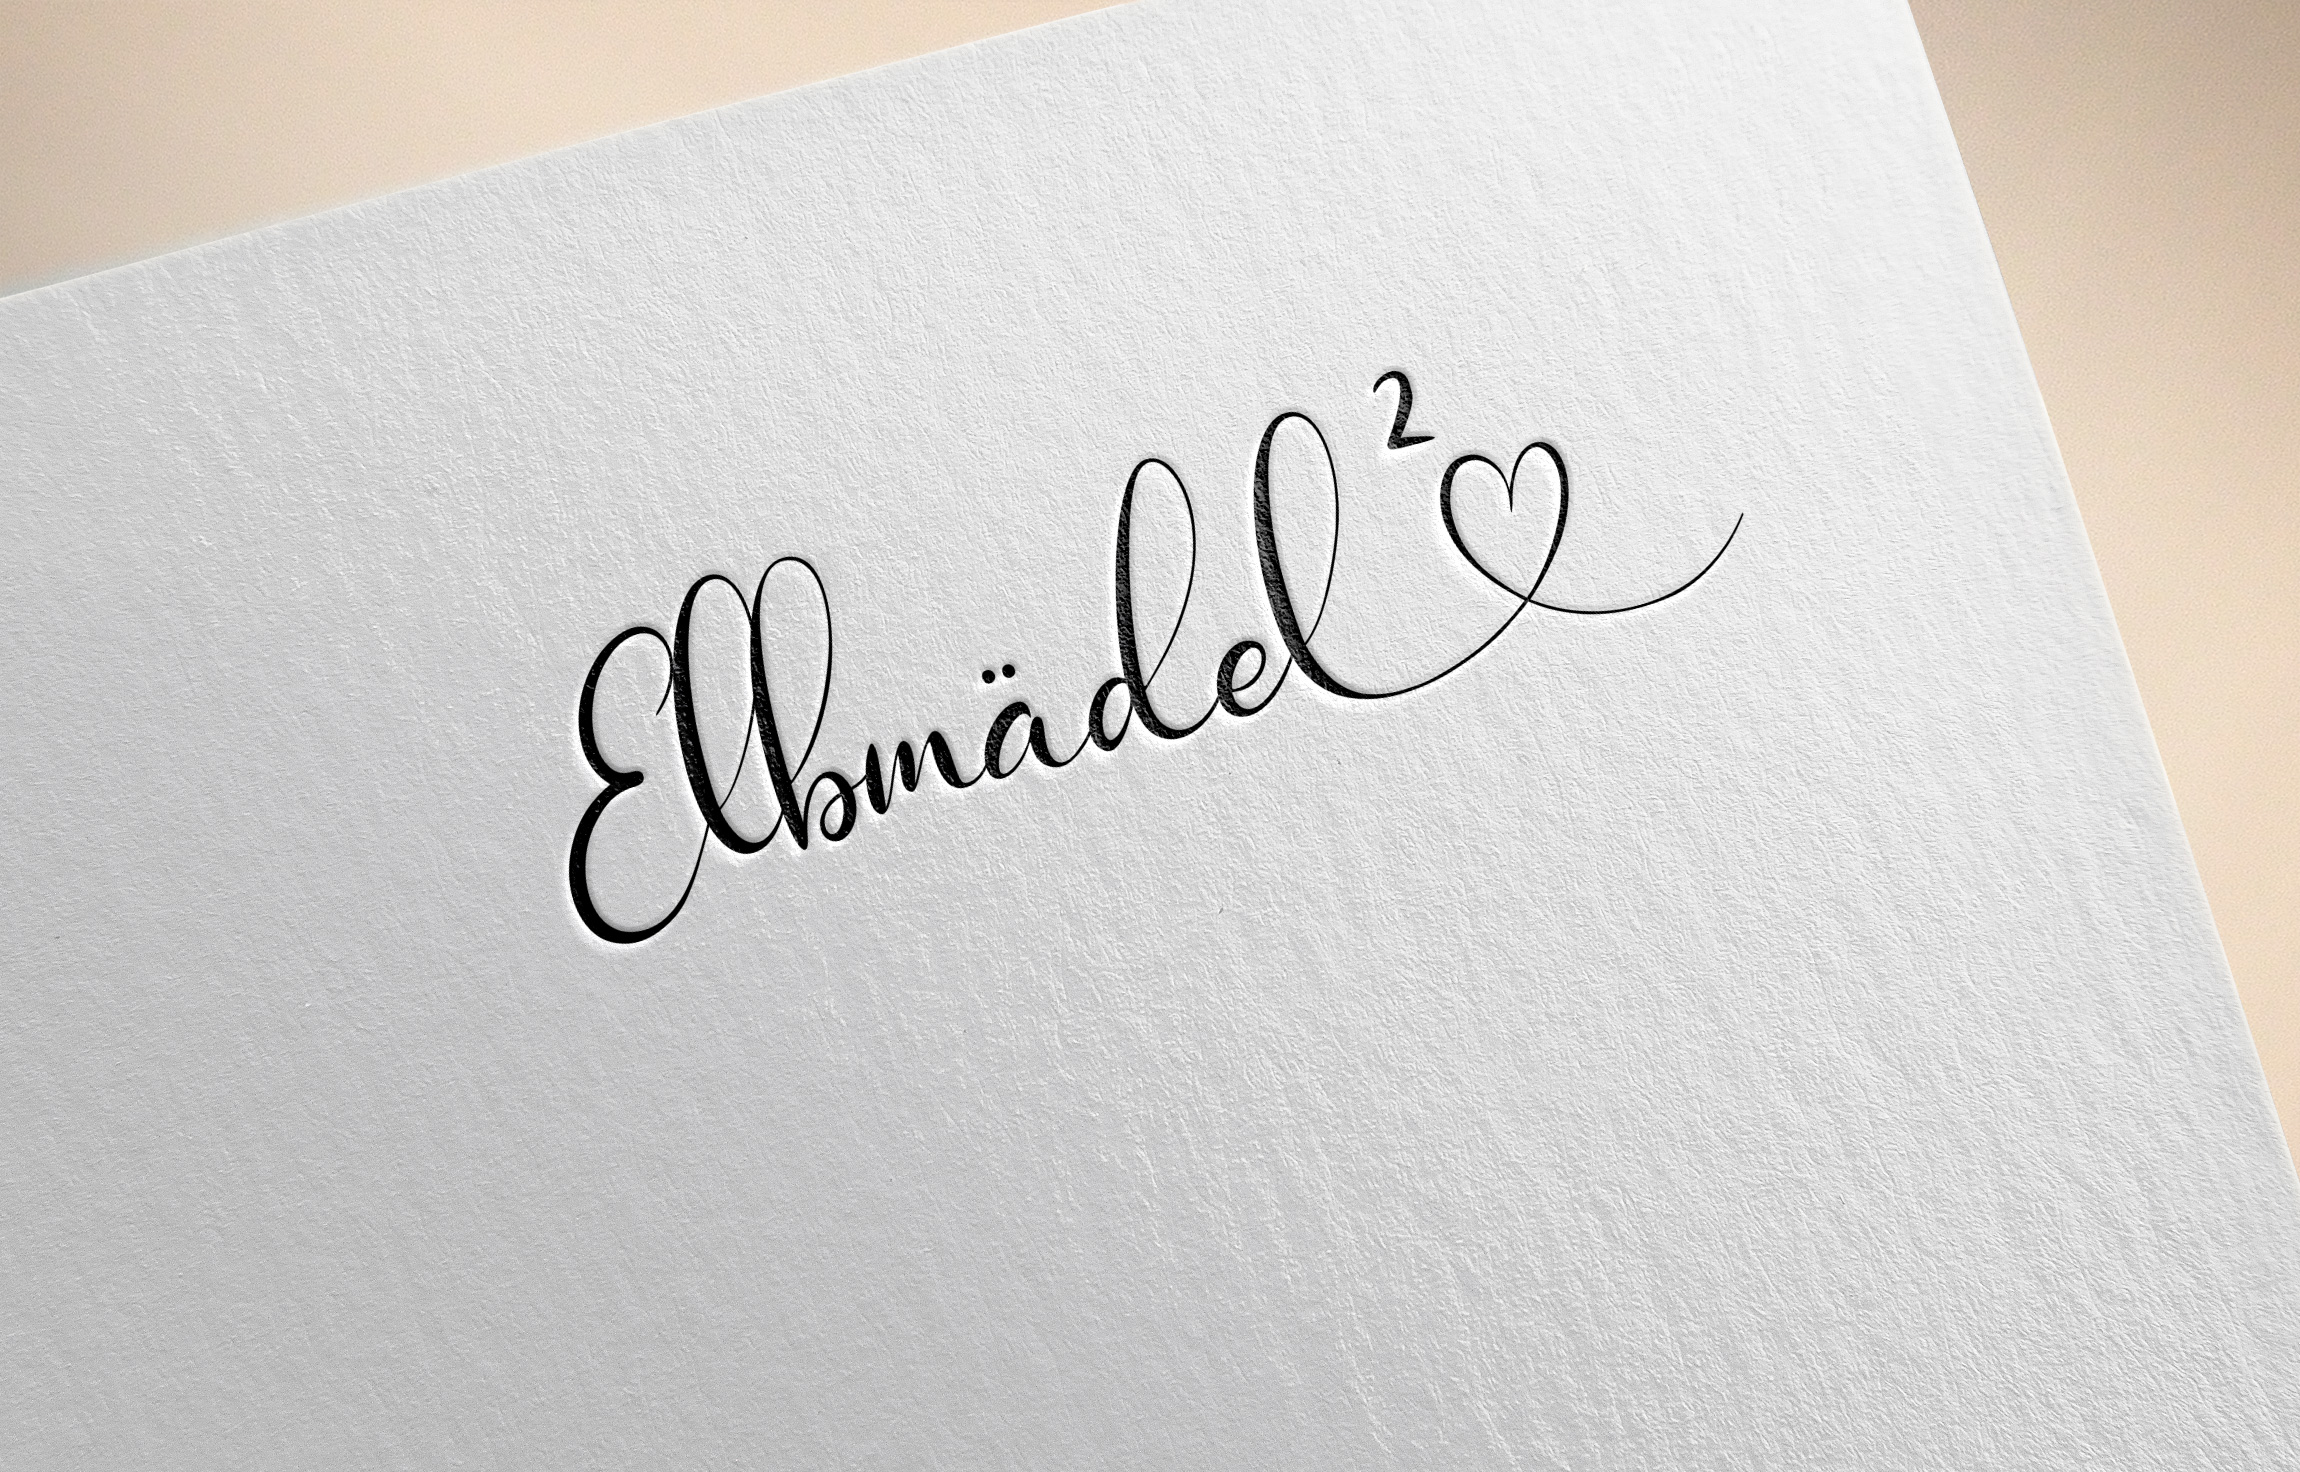 Elbmädel²